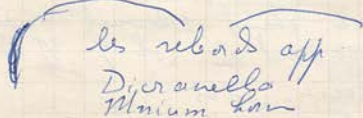 les rebords app
Dicranella
Mnium horn